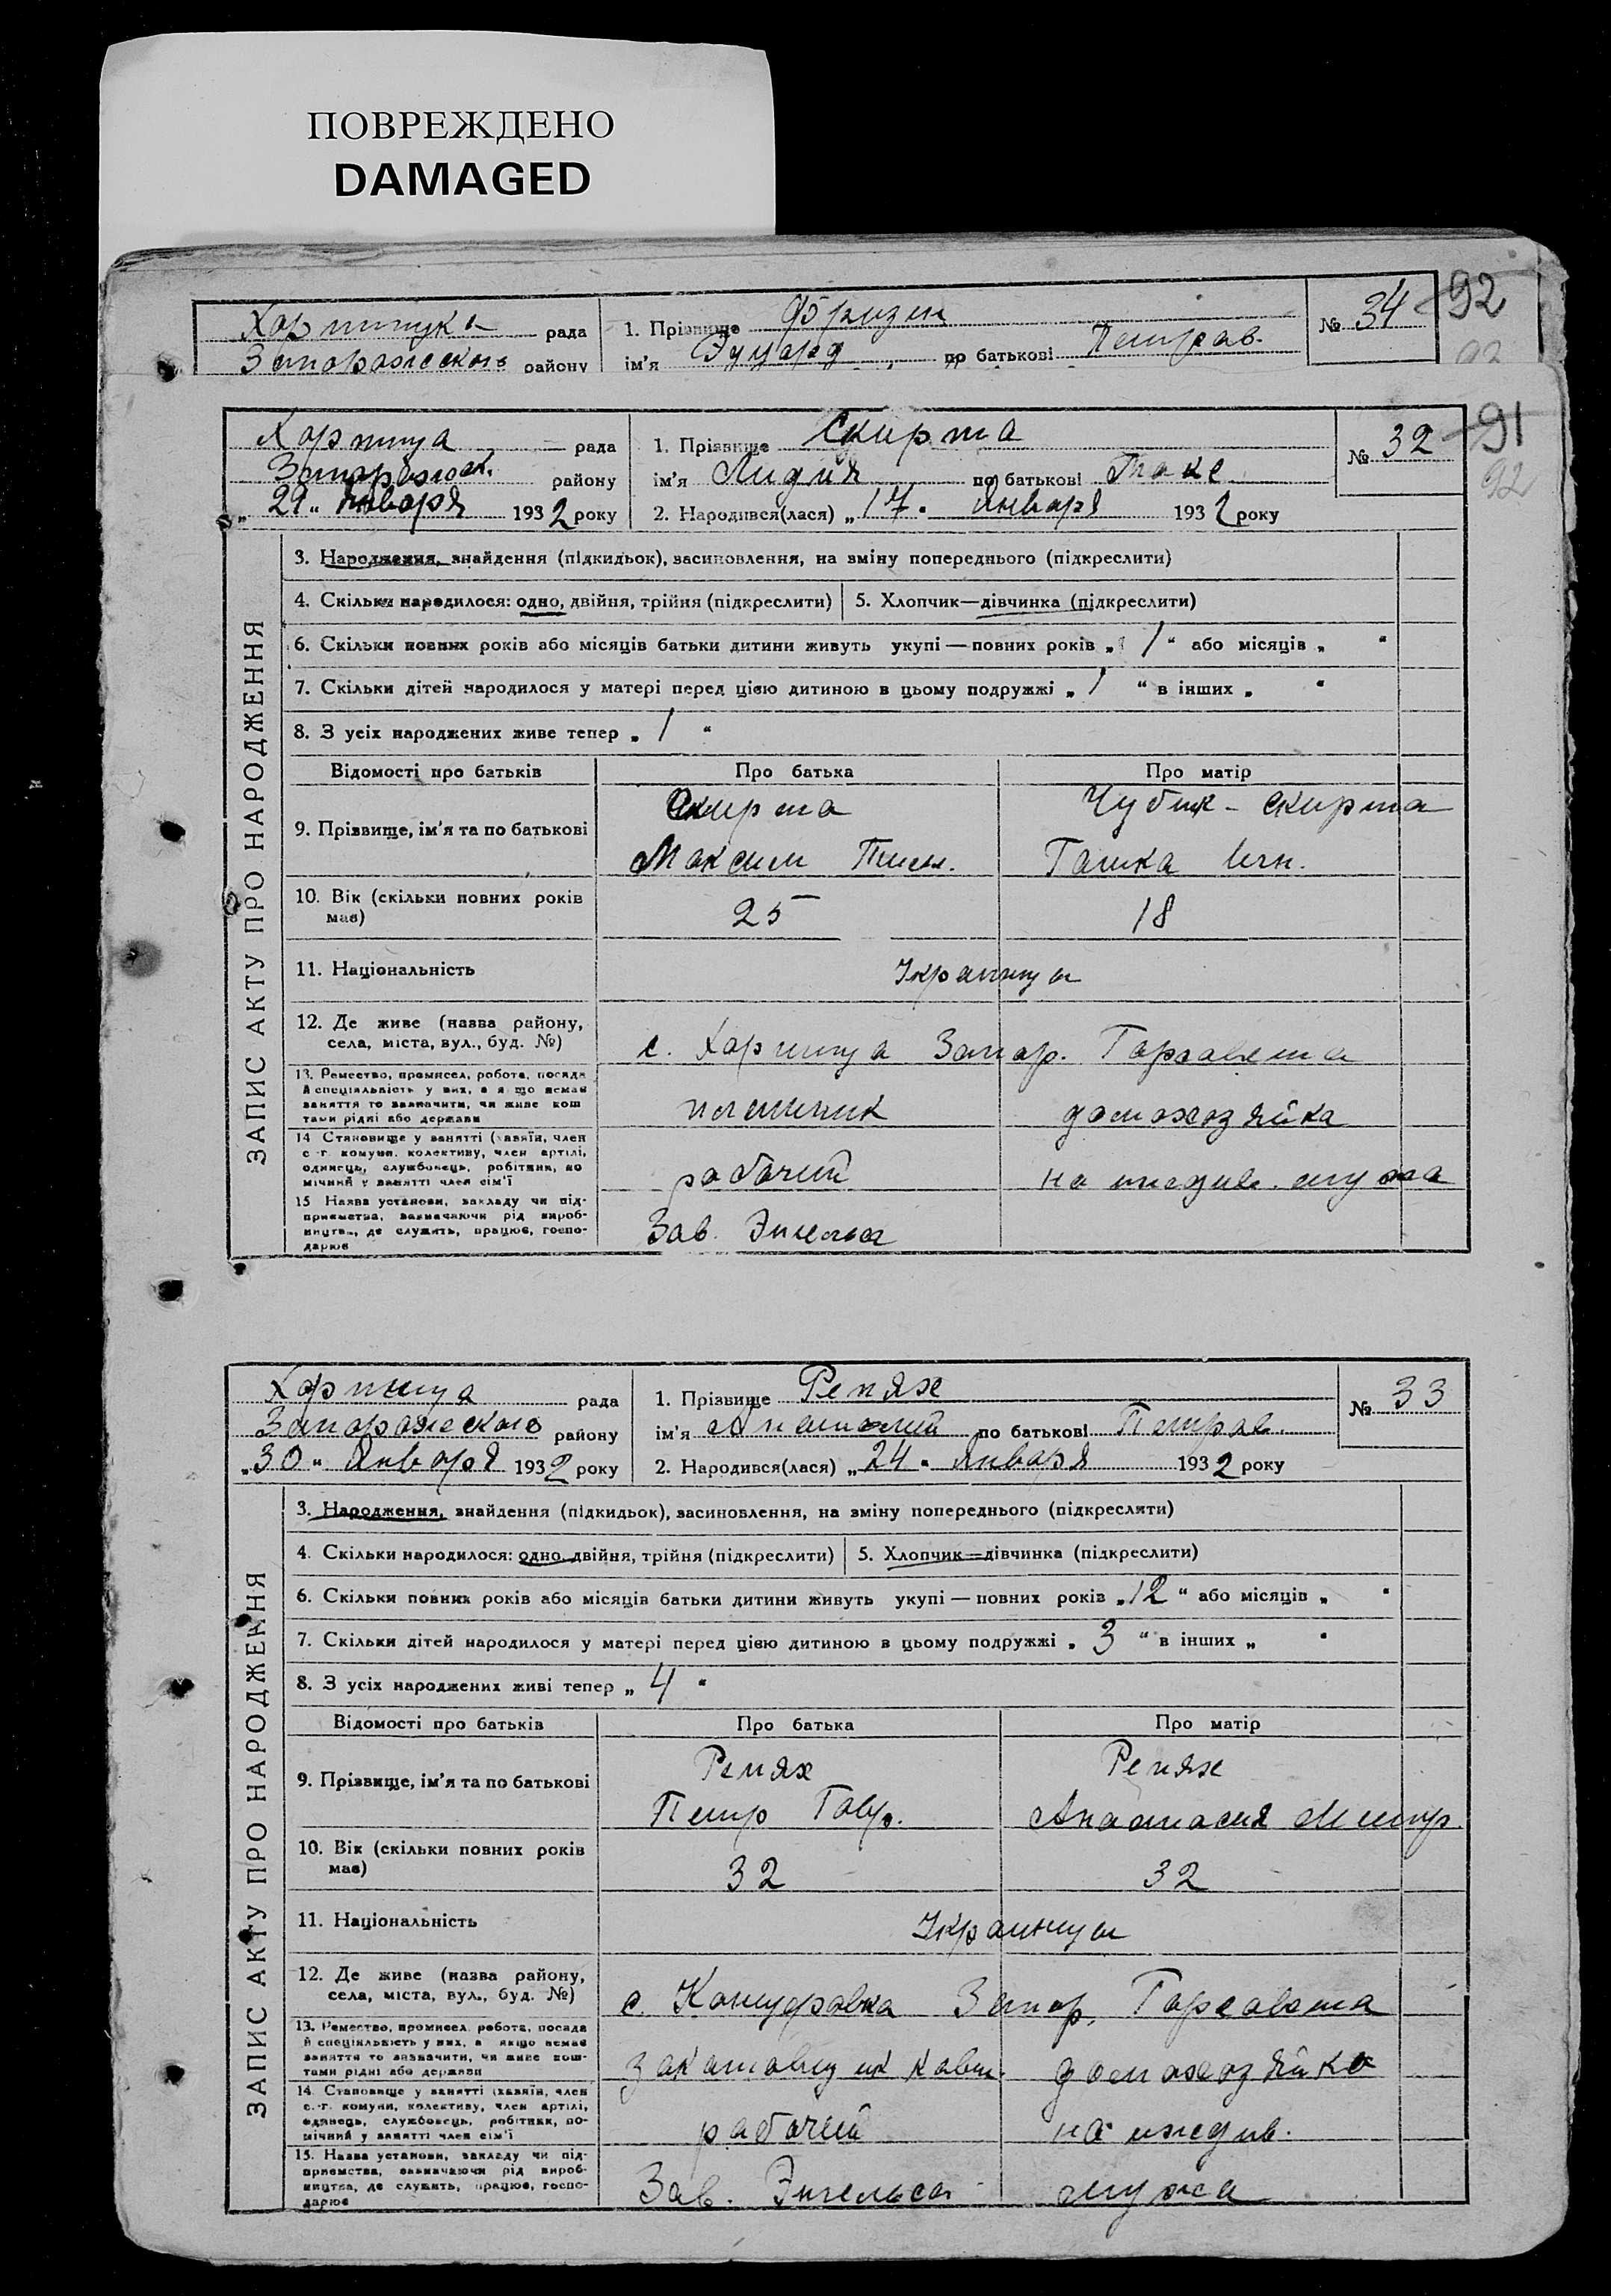 ПОВРЕЖДЕНО
DAMAGED
рада
1. Прізвище Фризен
№ 34
92
Запорожского району
ім'я Эдуард по батькові Петров.
Хортица рада
1. Прізвище Скирта
№ 32
91
92
Запорожск. району
ім'я Лидия по батькові Макс.
„29“ Января 1932 року
2. Народився(лася) „17“ Января 1932 року
ЗАПИС АКТУ ПРО НАРОДЖЕННЯ
3. Народження, знайдення (підкидьок), засиновлення, на зміну попереднього (підкреслити)
4. Скільки народилося: одно, двійня, трійня (підкреслити) 5. Хлопчик—дівчинка (підкреслити)
6. Скільки повних років або місяців батьки дитини живуть укупі — повних років „1“ або місяців „ “
7. Скільки дітей народилося у матері перед цією дитиною в цьому подружжі „1“ в інших „ “
8. З усіх народжених живе тепер „1“
Відомості про батьків Про батька Про матір
9. Прізвище, ім'я та по батькові
Скирта Чубик - Скирта
Максим Тим. Гашка Игн.
10. Вік (скільки повних років має)
25 18
11. Національність Украинцы
12. Де живе (назва району, села, міста, вул., буд. №)
с. Хортица Запор. Горсовета
13. Ремество, промисел, робота, посада й спеціяльність у них, а якщо немає заняття то зазначити, чи живе коштами рідні або держави
домохозяйка
14 Становище у занятті (хазяїн, член с.-г. комуни, колективу, член артілі, одинець, службовець, робітник, помічний у занятті член сім'ї
рабочий на иждив. мужа
15 Назва установи, закладу чи підприємства, зазначаючи рід виробництва, де служить, працює, господарює
Зав. Энгельса
Хортица рада
1. Прізвище Репях
№ 33
Запорожского району
ім'я Анатолий по батькові Петров.
„30“ Января 1932 року
2. Народився(лася) „24“ Января 1932 року
ЗАПИС АКТУ ПРО НАРОДЖЕННЯ
3. Народження, знайдення (підкидьок), засиновлення, на зміну попереднього (підкреслити)
4. Скільки народилося: одно, двійня, трійня (підкреслити) 5. Хлопчик—дівчинка (підкреслити)
6. Скільки повних років або місяців батьки дитини живуть укупі — повних років „12“ або місяців „ “
7. Скільки дітей народилося у матері перед цією дитиною в цьому подружжі „3“ в інших „ “
8. З усіх народжених живі тепер „4“
Відомості про батьків Про батька Про матір
9. Прізвище, ім'я та по батькові
Репях Репях
Петр Гавр. Анастасия Митр.
10. Вік (скільки повних років має)
32 32
11. Національність Украинцы
12. Де живе (назва району, села, міста, вул., буд. №)
с. Канцеровка Запор. Горсовета
13. Ремество, промисел, робота, посада й спеціяльність у них, а якщо немає заняття то зазначити, чи живе коштами рідні або держави
домохозяйка
14. Становище у занятті (хазяїн, член с.-г. комуни, колективу, член артілі, одинець, службовець, робітник, помічний у занятті член сім'ї
рабочий на иждив.
15. Назва установи, закладу чи підприємства, зазначаючи рід виробництва, де служить, працює, господарює
Зав. Энгельса мужа